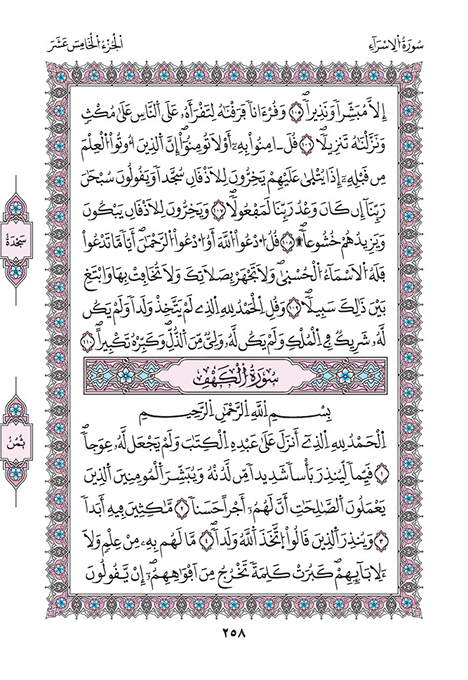 سُورَةُ الإِسْرَاءِ
الجُزْءُ الخَامِسَ عَشَرَ
إِلَّا مُبَشِّراً وَنَذِيراً ١٠٥ وَقُرْءَاناً فَرَقْنَٰهُ لِتَقْرَأَهُۥ عَلَى ٱلنَّاسِ عَلَىٰ مُكْثٍ
وَنَزَّلْنَٰهُ تَنزِيلًا ١٠٦ قُلَ ـٰامِنُواْ بِهِۦٓ أَوْ لَا تُومِنُوٓاْ إِنَّ ٱلذِينَ أُوتُواْ ٱلْعِلْمَ
مِن قَبْلِهِۦٓ إِذَا يُتْلَىٰ عَلَيْهِمْ يَخِرُّونَ لِلَاذْقَانِ سُجَّداً وَيَقُولُونَ سُبْحَٰنَ
رَبِّنَآ إِن كَانَ وَعْدُ رَبِّنَا لَمَفْعُولًا ١٠٧ وَيَخِرُّونَ لِلَاذْقَانِ يَبْكُونَ
وَيَزِيدُهُمْ خُشُوعاً ۩ ١٠٨ قُلُ ٱدْعُواْ ٱللَّهَ أَوُ ٱدْعُواْ ٱلرَّحْمَٰنَ أَيّاً مَّا تَدْعُواْ
فَلَهُ ٱلَاسْمَآءُ ٱلْحُسْنَىٰ وَلَا تَجْهَرْ بِصَلَاتِكَ وَلَا تُخَافِتْ بِهَا وَٱبْتَغِ
بَيْنَ ذَٰلِكَ سَبِيلًا ١٠٩ وَقُلِ ٱلْحَمْدُ لِلهِ ٱلذِے لَمْ يَتَّخِذْ وَلَداً وَلَمْ يَكُن
لَّهُۥ شَرِيكٌ فِے ٱلْمُلْكِ وَلَمْ يَكُن لَّهُۥ وَلِيٌّ مِّنَ ٱلذُّلِّ وَكَبِّرْهُ تَكْبِيراً ١١٠
سُورَةُ الكَهْفِ
بِسْمِ ٱللَّهِ ٱلرَّحْمَٰنِ ٱلرَّحِيمِ
ٱلْحَمْدُ لِلهِ ٱلذِےٓ أَنزَلَ عَلَىٰ عَبْدِهِ ٱلْكِتَٰبَ وَلَمْ يَجْعَل لَّهُۥ عِوَجاً
١ قَيِّماً لِّيُنذِرَ بَأْساً شَدِيداً مِّن لَّدُنْهُ وَيُبَشِّرَ ٱلْمُومِنِينَ ٱلذِينَ
يَعْمَلُونَ ٱلصَّٰلِحَٰتِ أَنَّ لَهُمُۥٓ أَجْراً حَسَناً ٢ مَّٰكِثِينَ فِيهِ أَبَداً
٣ وَيُنذِرَ ٱلذِينَ قَالُواْ ٱتَّخَذَ ٱللَّهُ وَلَداً ٤ مَّا لَهُم بِهِۦ مِنْ عِلْمٍ وَلَا
لِأَبَآئِهِمْ كَبُرَتْ كَلِمَةً تَخْرُجُ مِنَ اَفْوَٰهِهِمُۥٓ إِنْ يَّقُولُونَ
سَجْدَة
ثُمُن
٢٥٨